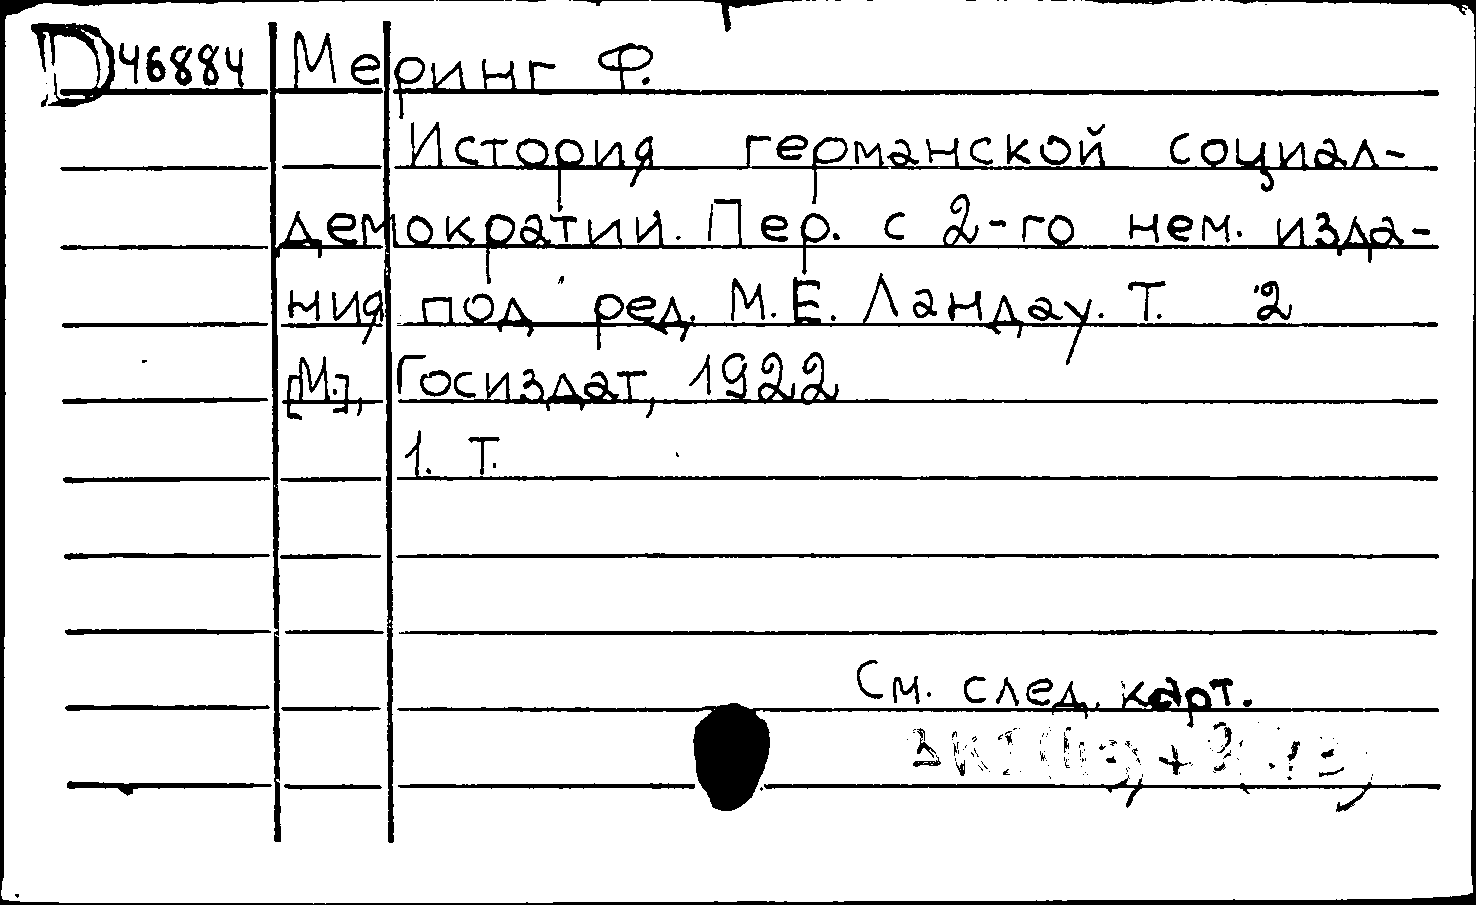 D 46884 Меринг Ф.
История германской социал-
демократии. Пер. с 2-го нем. изда-
ния под ред. М.Е. Ландау. Т. 2
[М.], Госиздат, 1922
1. Т.
См. след. карт.